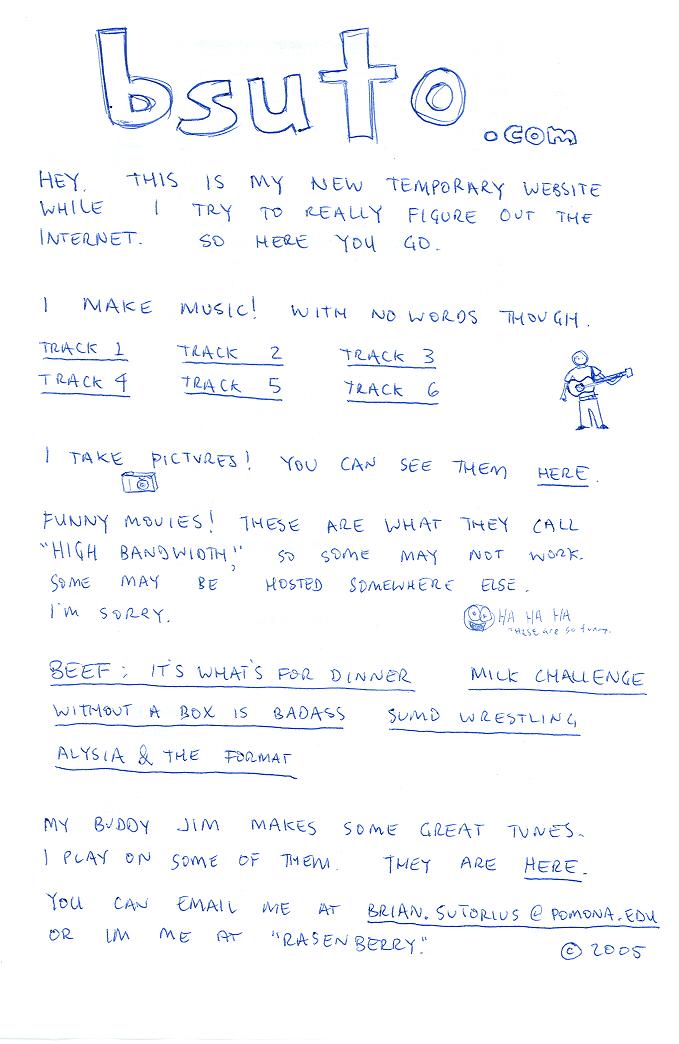 bsuto.com
HEY. THIS IS MY NEW TEMPORARY WEBSITE
WHILE I TRY TO REALLY FIGURE OUT THE
INTERNET. SO HERE YOU GO.
I MAKE MUSIC! WITH NO WORDS THOUGH.
TRACK 1 TRACK 2 TRACK 3
TRACK 4 TRACK 5 TRACK 6
I TAKE PICTURES! YOU CAN SEE THEM HERE.
FUNNY MOVIES! THESE ARE WHAT THEY CALL
"HIGH BANDWIDTH," SO SOME MAY NOT WORK.
SOME MAY BE HOSTED SOMEWHERE ELSE.
I'M SORRY.
HA HA HA
these are so funny.
BEEF: IT'S WHAT'S FOR DINNER MILK CHALLENGE
WITHOUT A BOX IS BADASS SUMO WRESTLING
ALYSIA & THE FORMAT
MY BUDDY JIM MAKES SOME GREAT TUNES.
I PLAY ON SOME OF THEM. THEY ARE HERE.
YOU CAN EMAIL ME AT BRIAN.SUTORIUS@POMONA.EDU
OR IM ME AT "RASENBERRY."
© 2005